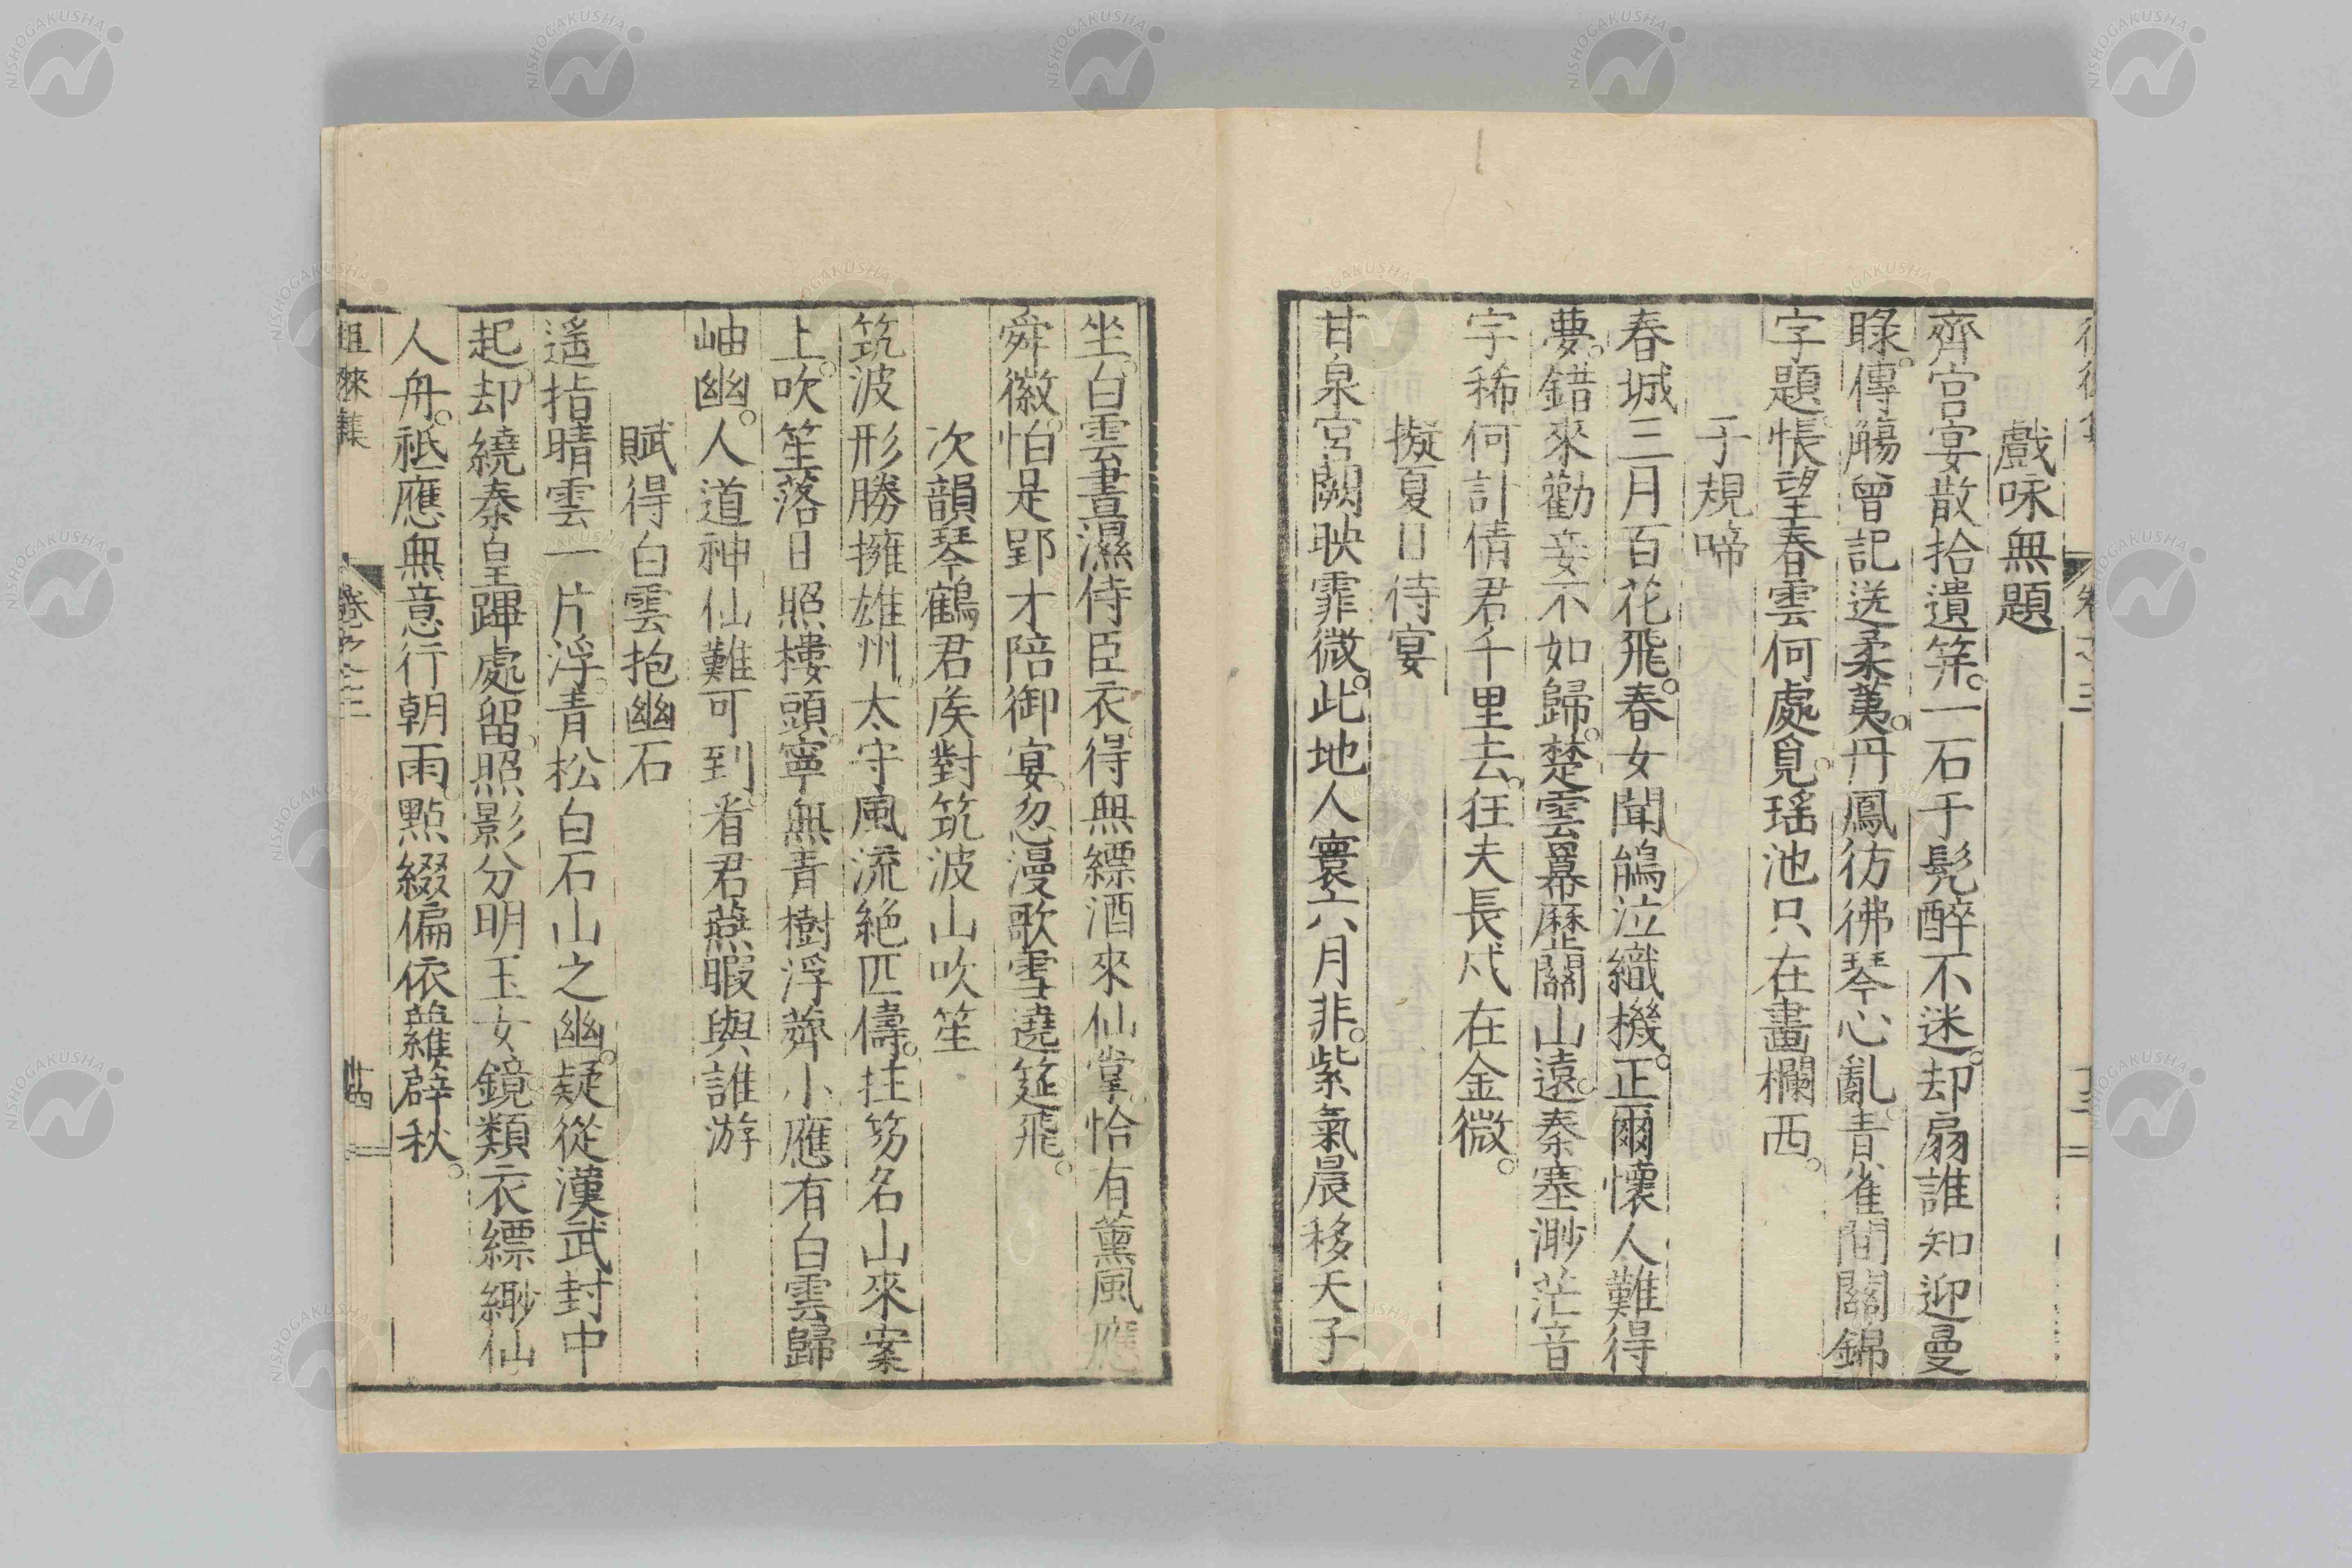 戲咏無題
齊宮宴散拾遺筓。一石于髠醉不迷。却扇誰知迎曼
睩。傳觴曾記送柔荑。丹鳳彷彿琴心亂。青雀間關錦
字題。悵望春雲何處覓。瑤池只在畫欄西。
子規啼
春城三月百花飛。春女聞鵃泣織機。正爾懷人難得
夢。錯來勸妾不如歸。楚雲羃䍥關山遠。秦塞渺茫音
字稀。何計倩君千里去。狂夫長戍在金微。
擬夏日侍宴
甘泉宮闕映霏微。此地人寰六月非。紫氣晨移天子
坐。白雲晝濕侍臣衣。得無縹酒來仙掌。恰有薰風應
舜徽。怕是郢才陪御宴。忽漫歌雪遶筵飛。
次韻琴鶴君矦對筑波山吹笙
筑波形勝擁雄州。太守風流絕匹儔。拄笏名山來案
上。吹笙落日照樓頭。寧無青樹浮薺小。應有白雲歸
岫幽。人道神仙難可到。看君燕暇與誰游
賦得白雲抱幽石
遥指晴雲一片浮。青松白石山之幽。疑從漢武封中
起。却繞秦皇蹕處留。照影分明玉女鏡。類衣縹緲仙
人舟。祗應無意行朝雨。點綴偏依蘿薜秋。
徂徠集
卷之三
十四
NISHOGAKUSHA